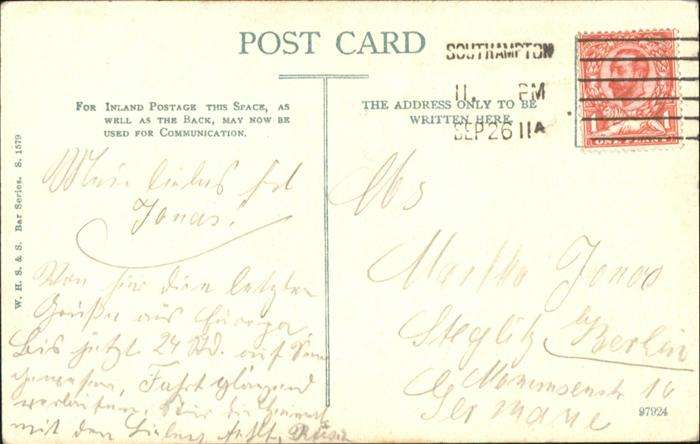 POST CARD
SOUTHAMPTON
11. PM
SEP 26 11A
FOR INLAND POSTAGE THIS SPACE, AS
WELL AS THE BACK, MAY NOW BE
USED FOR COMMUNICATION.
THE ADDRESS ONLY TO BE
WRITTEN HERE.
ONE PENNY
W. H. S. & S. Bar Series. S. 1579
Mein liebes
Jonas!
Von hier die letzten
Grüße aus Europa.
Bis jetzt 24 Std. auf
gewesen, Fahrt glänzend
verlaufen.
mit den Lieben
Martha Jonas
Steglitz by Berlin
Mommsenstr 10
Germany
97924